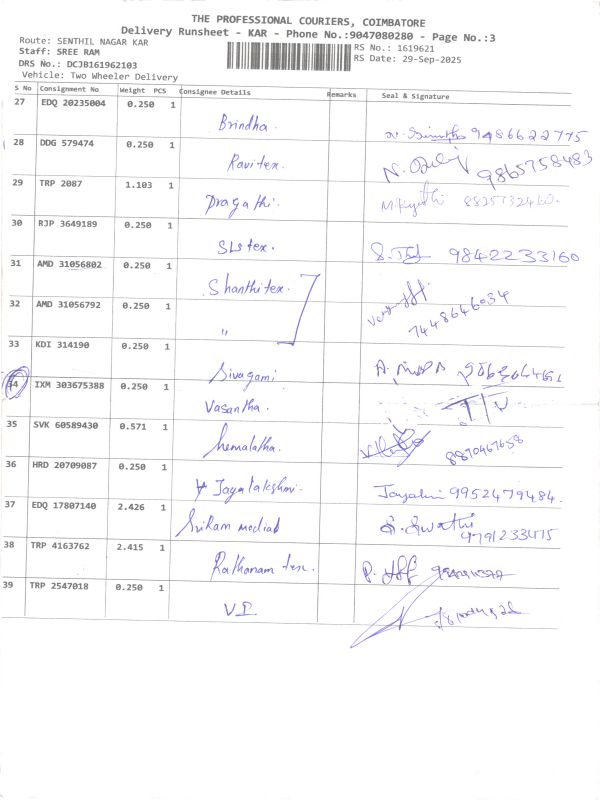 THE PROFESSIONAL COURIERS, COIMBATORE
Delivery Runsheet - KAR - Phone No.:9047080280 - Page No.:3
Route: SENTHIL NAGAR KAR
RS No.: 1619621
Staff: SREE RAM
RS Date: 29-Sep-2025
DRS No.: DCJB161962103
Vehicle: Two Wheeler Delivery
S No Consignment No Weight PCS Consignee Details Remarks Seal & Signature
27 EDQ 20235004 0.250 1 Brindha. 9486622775
28 DDG 579474 0.250 1 Ravitex. 9865758483
29 TRP 2087 1.103 1 Pragathi.
30 RJP 3649189 0.250 1 SLS tex. 9842233160
31 AMD 31056802 0.250 1 Shanthitex.
32 AMD 31056792 0.250 1 " 7448646034
33 KDI 314190 0.250 1 Sivagami
34 IXM 303675388 0.250 1 Vasantha.
35 SVK 60589430 0.571 1 hemalatha. 8870467658
36 HRD 20709087 0.250 1 Jayalakshmi. 9952479484.
37 EDQ 17807140 2.426 1 SriRam medical S. Swathi
9791233475
38 TRP 4163762 2.415 1 Rathanam tex.
39 TRP 2547018 0.250 1